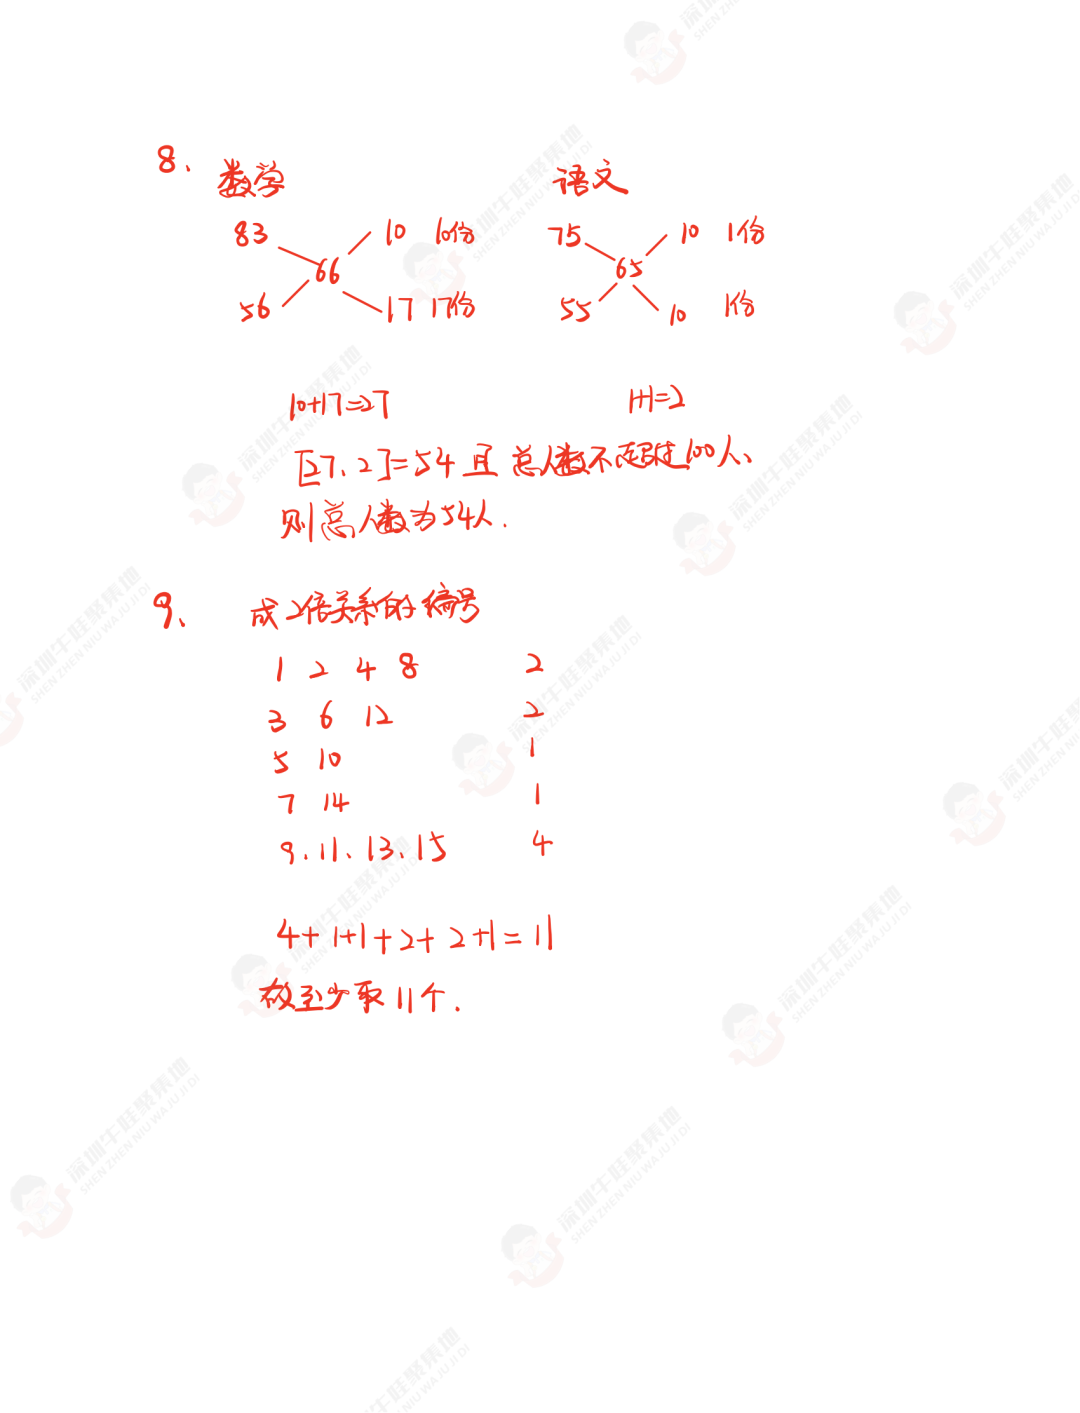 8、 数学 语文
83 10 10份 75 10 1份
66 65
56 17 17份 55 10 1份
10+17=27 1+1=2
[27、2]=54 且 总人数不超过100人、
则总人数为54人.
9、 成2倍关系的编号
1 2 4 8 2
3 6 12 2
5 10 1
7 14 1
9、11、13、15 4
4+1+1+2+2+1=11
故至少取11个.
深圳牛娃聚集地
SHEN ZHEN NIU WA JU JI DI